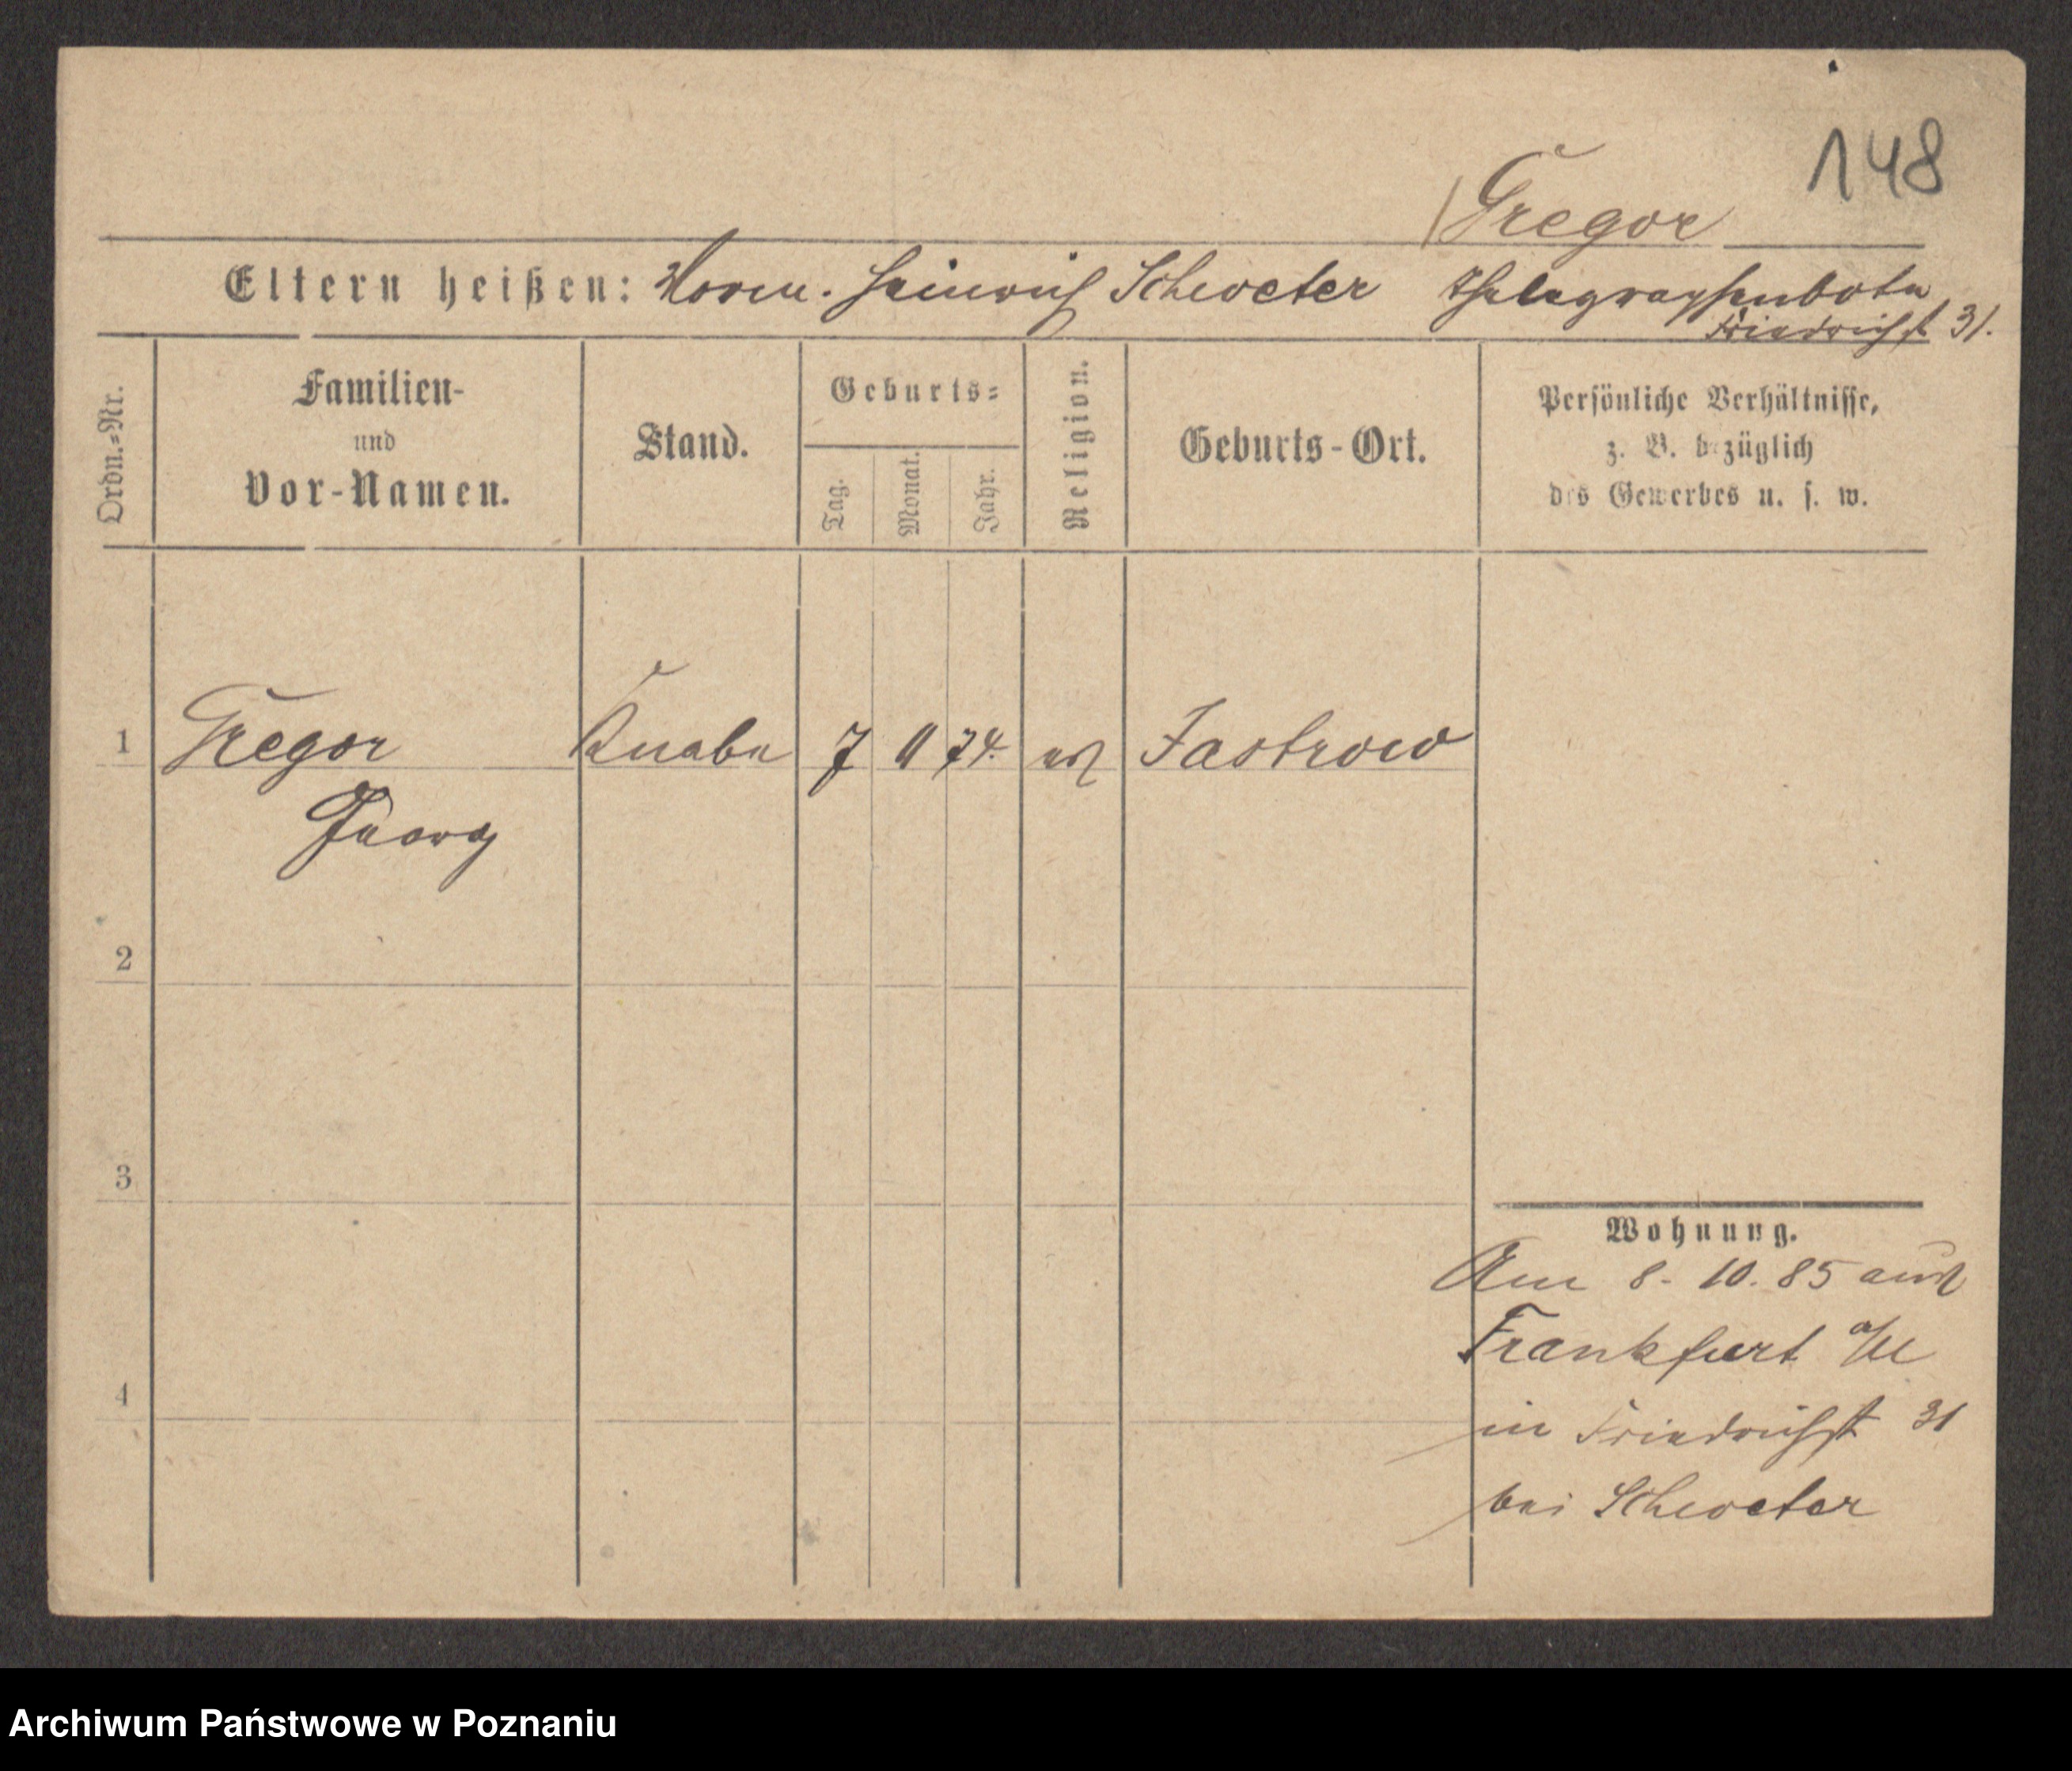 148
Gregor
Eltern heißen: Vorm. Heinrich Schweter Thelegraphenbote
Friedrichst 31.
Ordn.=Nr.
Familien-
und
Vor-Namen.
Stand.
Geburts=
Tag.
Monat.
Jahr.
Religion.
Geburts-Ort.
Persönliche Verhältnisse,
z. B. bezüglich
des Gewerbes u. s. w.
1 Gregor Knabe 7 11 74. ev Jastrow
Georg
2
3
4
Wohnung.
Am 8. 10. 85 aus
Frankfurt a/M
in Friedrichst 31
bei Schweter
Archiwum Państwowe w Poznaniu